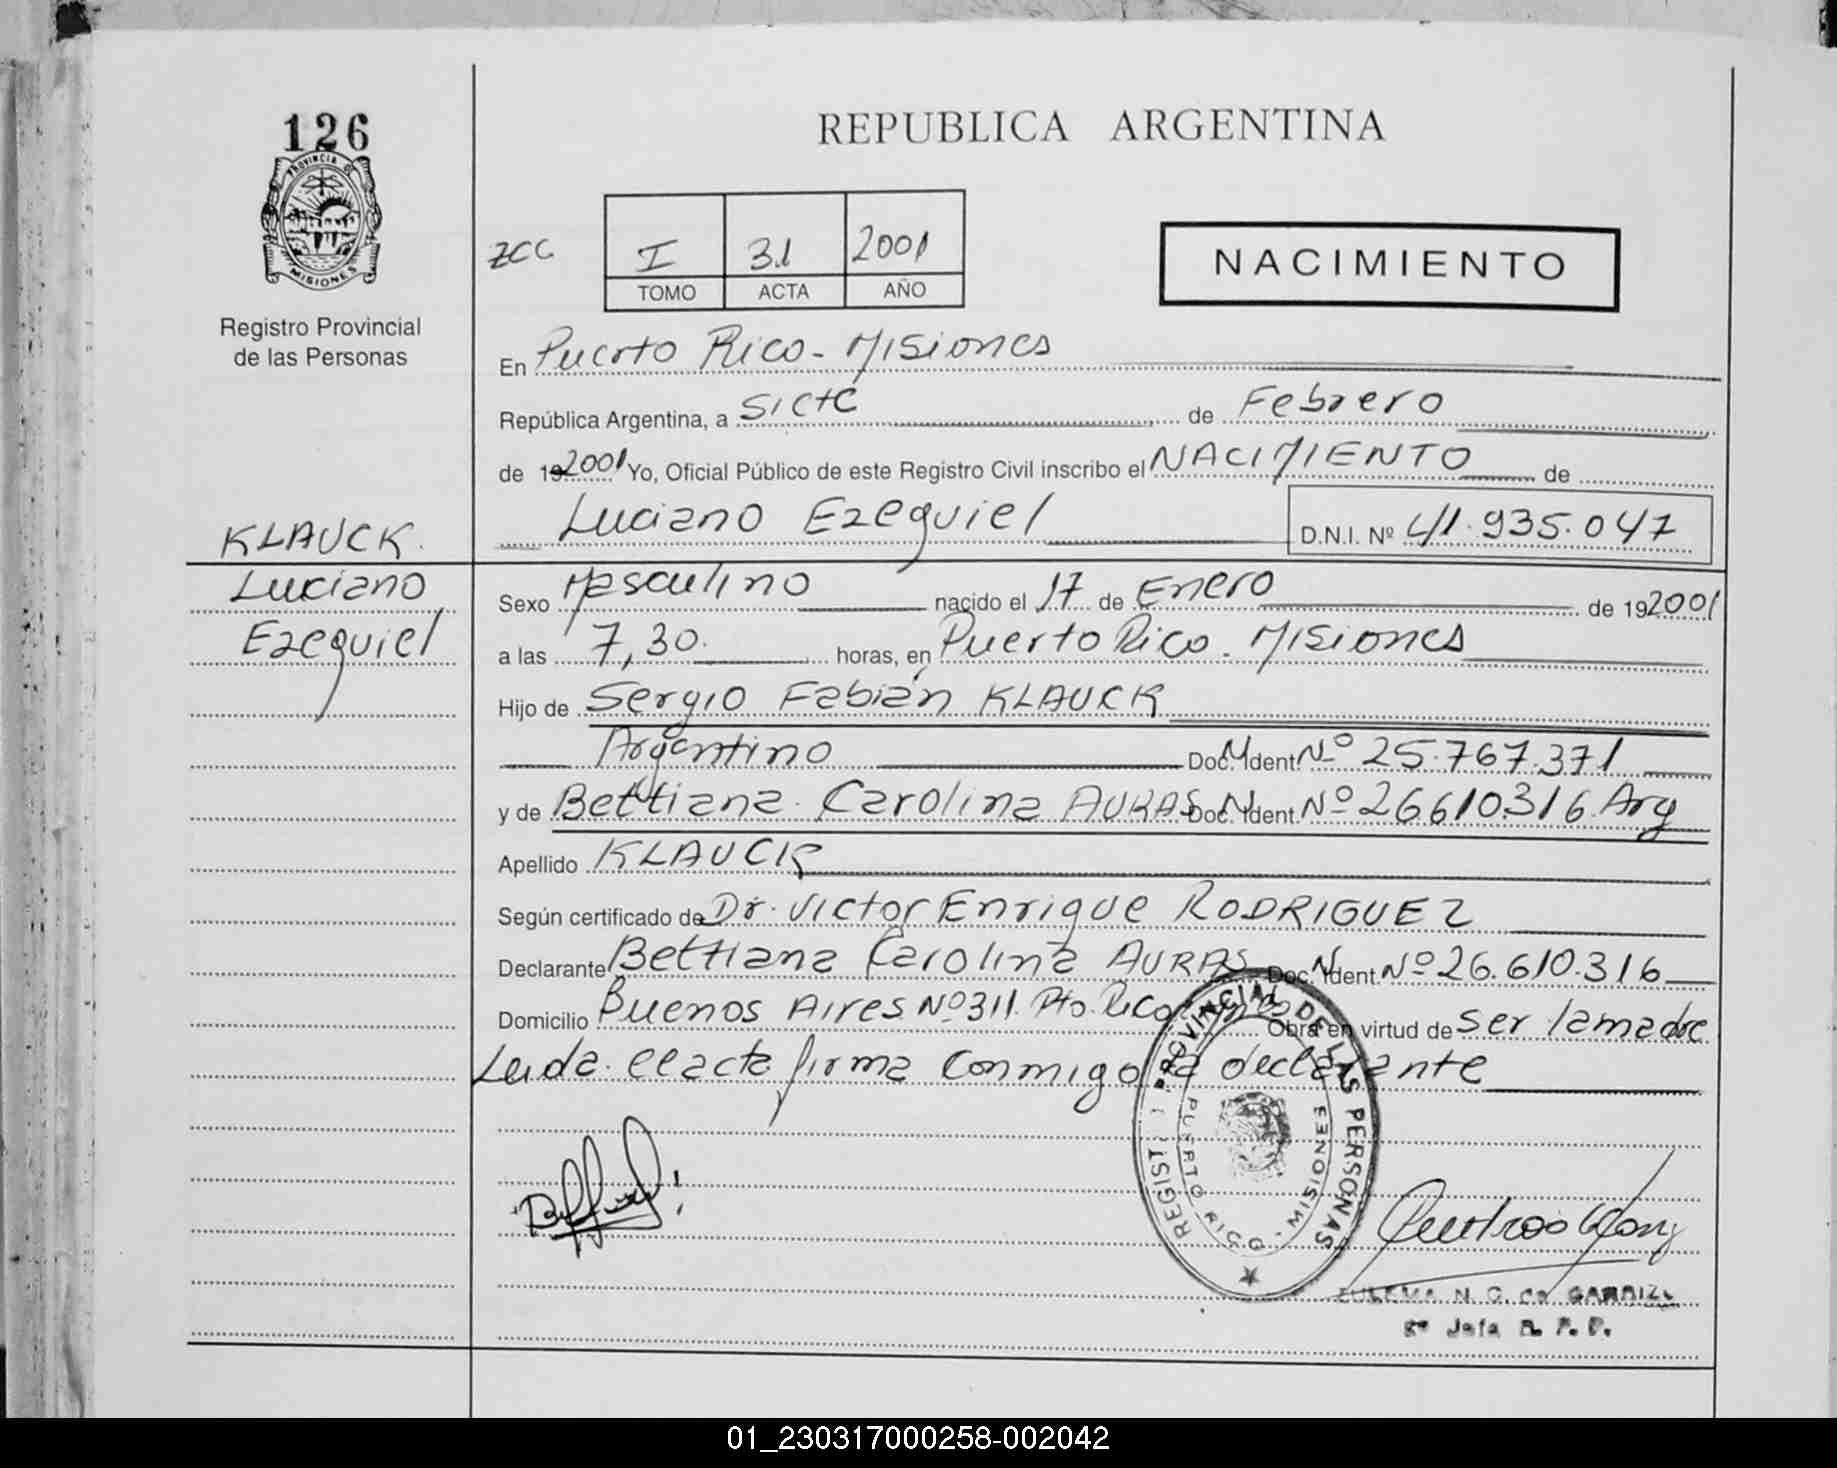 126
PROVINCIA DE
MISIONES
Registro Provincial
de las Personas
REPUBLICA ARGENTINA
ZCC
I 31 2001
TOMO ACTA AÑO
NACIMIENTO
En Puerto Rico - Misiones
República Argentina, a Siete de Febrero
de 192001 Yo, Oficial Público de este Registro Civil inscribo el NACIMIENTO de
Luciano Ezequiel D.N.I. Nº 41.935.047
KLAUCK.
Luciano
Ezequiel
Sexo Masculino nacido el 17 de Enero de 192001
a las 7,30. horas, en Puerto Rico - Misiones
Hijo de Sergio Fabián KLAUCK
Argentino Doc. N. Ident. Nº 25.767.371
y de Bettiana Carolina AURAS Doc. N. Ident. Nº 26610316 Arg
Apellido KLAUCK
Según certificado de Dr. Victor Enrique RODRIGUEZ
Declarante Bettiana Carolina AURAS Doc. N. Ident. Nº 26.610.316
Domicilio Buenos Aires Nº 311 Pto. Rico Obra en virtud de ser la madre
Leida el acta firma conmigo la declarante
REGISTRO PROVINCIAL DE LAS PERSONAS
PUERTO RICO - MISIONES
ZULEMA N. C. de
2º Jefa R. P. P.
01_230317000258-002042